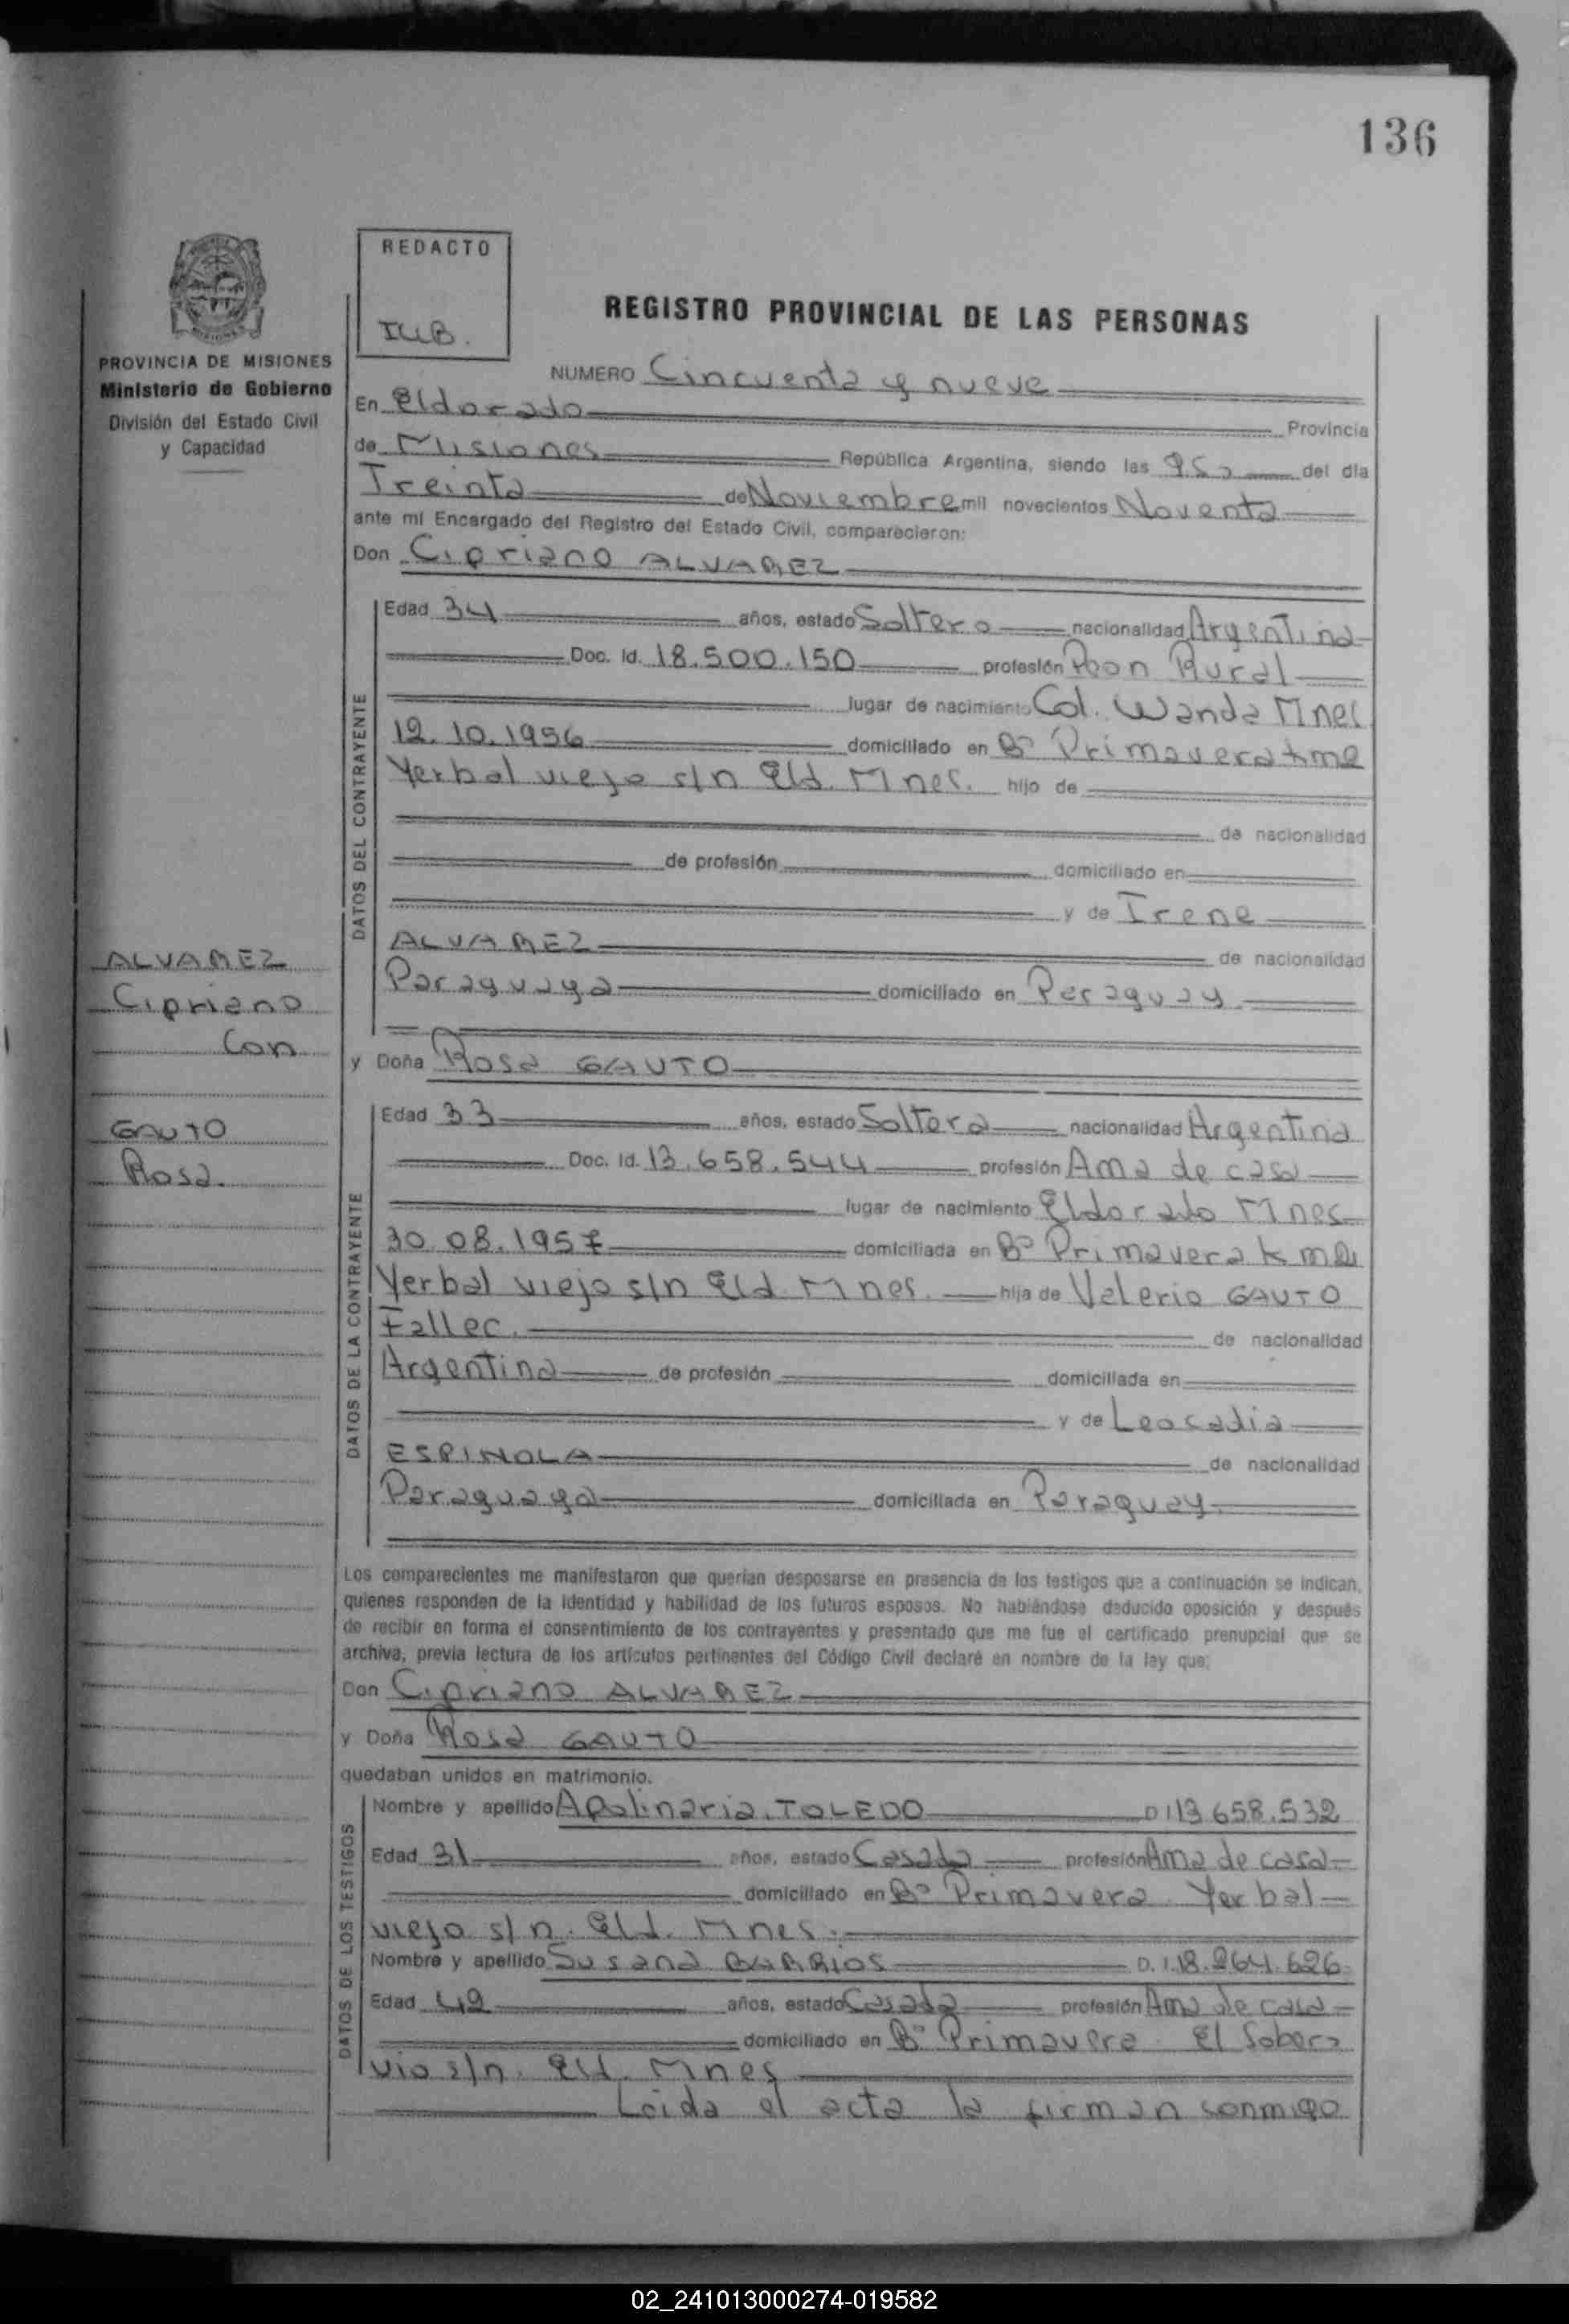 136
REDACTO
REGISTRO PROVINCIAL DE LAS PERSONAS
PROVINCIA DE MISIONES
Ministerio de Gobierno
División del Estado Civil
y Capacidad
NUMERO Cincuenta y nueve
En Eldorado Provincia
de Misiones República Argentina, siendo las 9.50 del día
Treinta de Noviembre mil novecientos Noventa
ante mí Encargado del Registro del Estado Civil, comparecieron:
Don Cipriano ALVAREZ
DATOS DEL CONTRAYENTE
Edad 34 años, estado Soltero nacionalidad Argentina
Doc. Id. 18.500.150 profesión Peon Rural
lugar de nacimiento Col. Wanda Mnes
12.10.1956 domiciliado en Bº Primavera
Yerbal viejo s/n Eld. Mnes. hijo de
de nacionalidad
de profesión domiciliado en
y de Irene
ALVAREZ de nacionalidad
Paraguaya domiciliado en Paraguay
ALVAREZ
Cipriano
Con
GAUTO
Rosa.
y Doña Rosa GAUTO
DATOS DE LA CONTRAYENTE
Edad 33 años, estado Soltera nacionalidad Argentina
Doc. Id. 13.658.544 profesión Ama de casa
lugar de nacimiento Eldorado Mnes
30.08.1957 domiciliada en Bº Primavera
Yerbal viejo s/n Eld. Mnes. hija de Valerio GAUTO
Fallec. de nacionalidad
Argentina de profesión domiciliada en
y de Leocadia
ESPINOLA de nacionalidad
Paraguaya domiciliada en Paraguay
Los comparecientes me manifestaron que querían desposarse en presencia de los testigos que a continuación se indican,
quienes responden de la identidad y habilidad de los futuros esposos. No habiéndose deducido oposición y después
de recibir en forma el consentimiento de los contrayentes y presentado que me fue el certificado prenupcial que se
archiva, previa lectura de los artículos pertinentes del Código Civil declaré en nombre de la ley que:
Don Cipriano ALVAREZ
y Doña Rosa GAUTO
quedaban unidos en matrimonio.
DATOS DE LOS TESTIGOS
Nombre y apellido Apolinaria TOLEDO D.I 13.658.532
Edad 31 años, estado Casada profesión Ama de casa
domiciliado en Bº Primavera Yerbal
viejo s/n. Eld. Mnes.
Nombre y apellido Susana BARRIOS D.I. 18.264.626
Edad 49 años, estado Casada profesión Ama de casa
domiciliado en Bº Primavera El Sober
vio s/n. Eld. Mnes
Leida el acta la firman conmigo
02_241013000274-019582